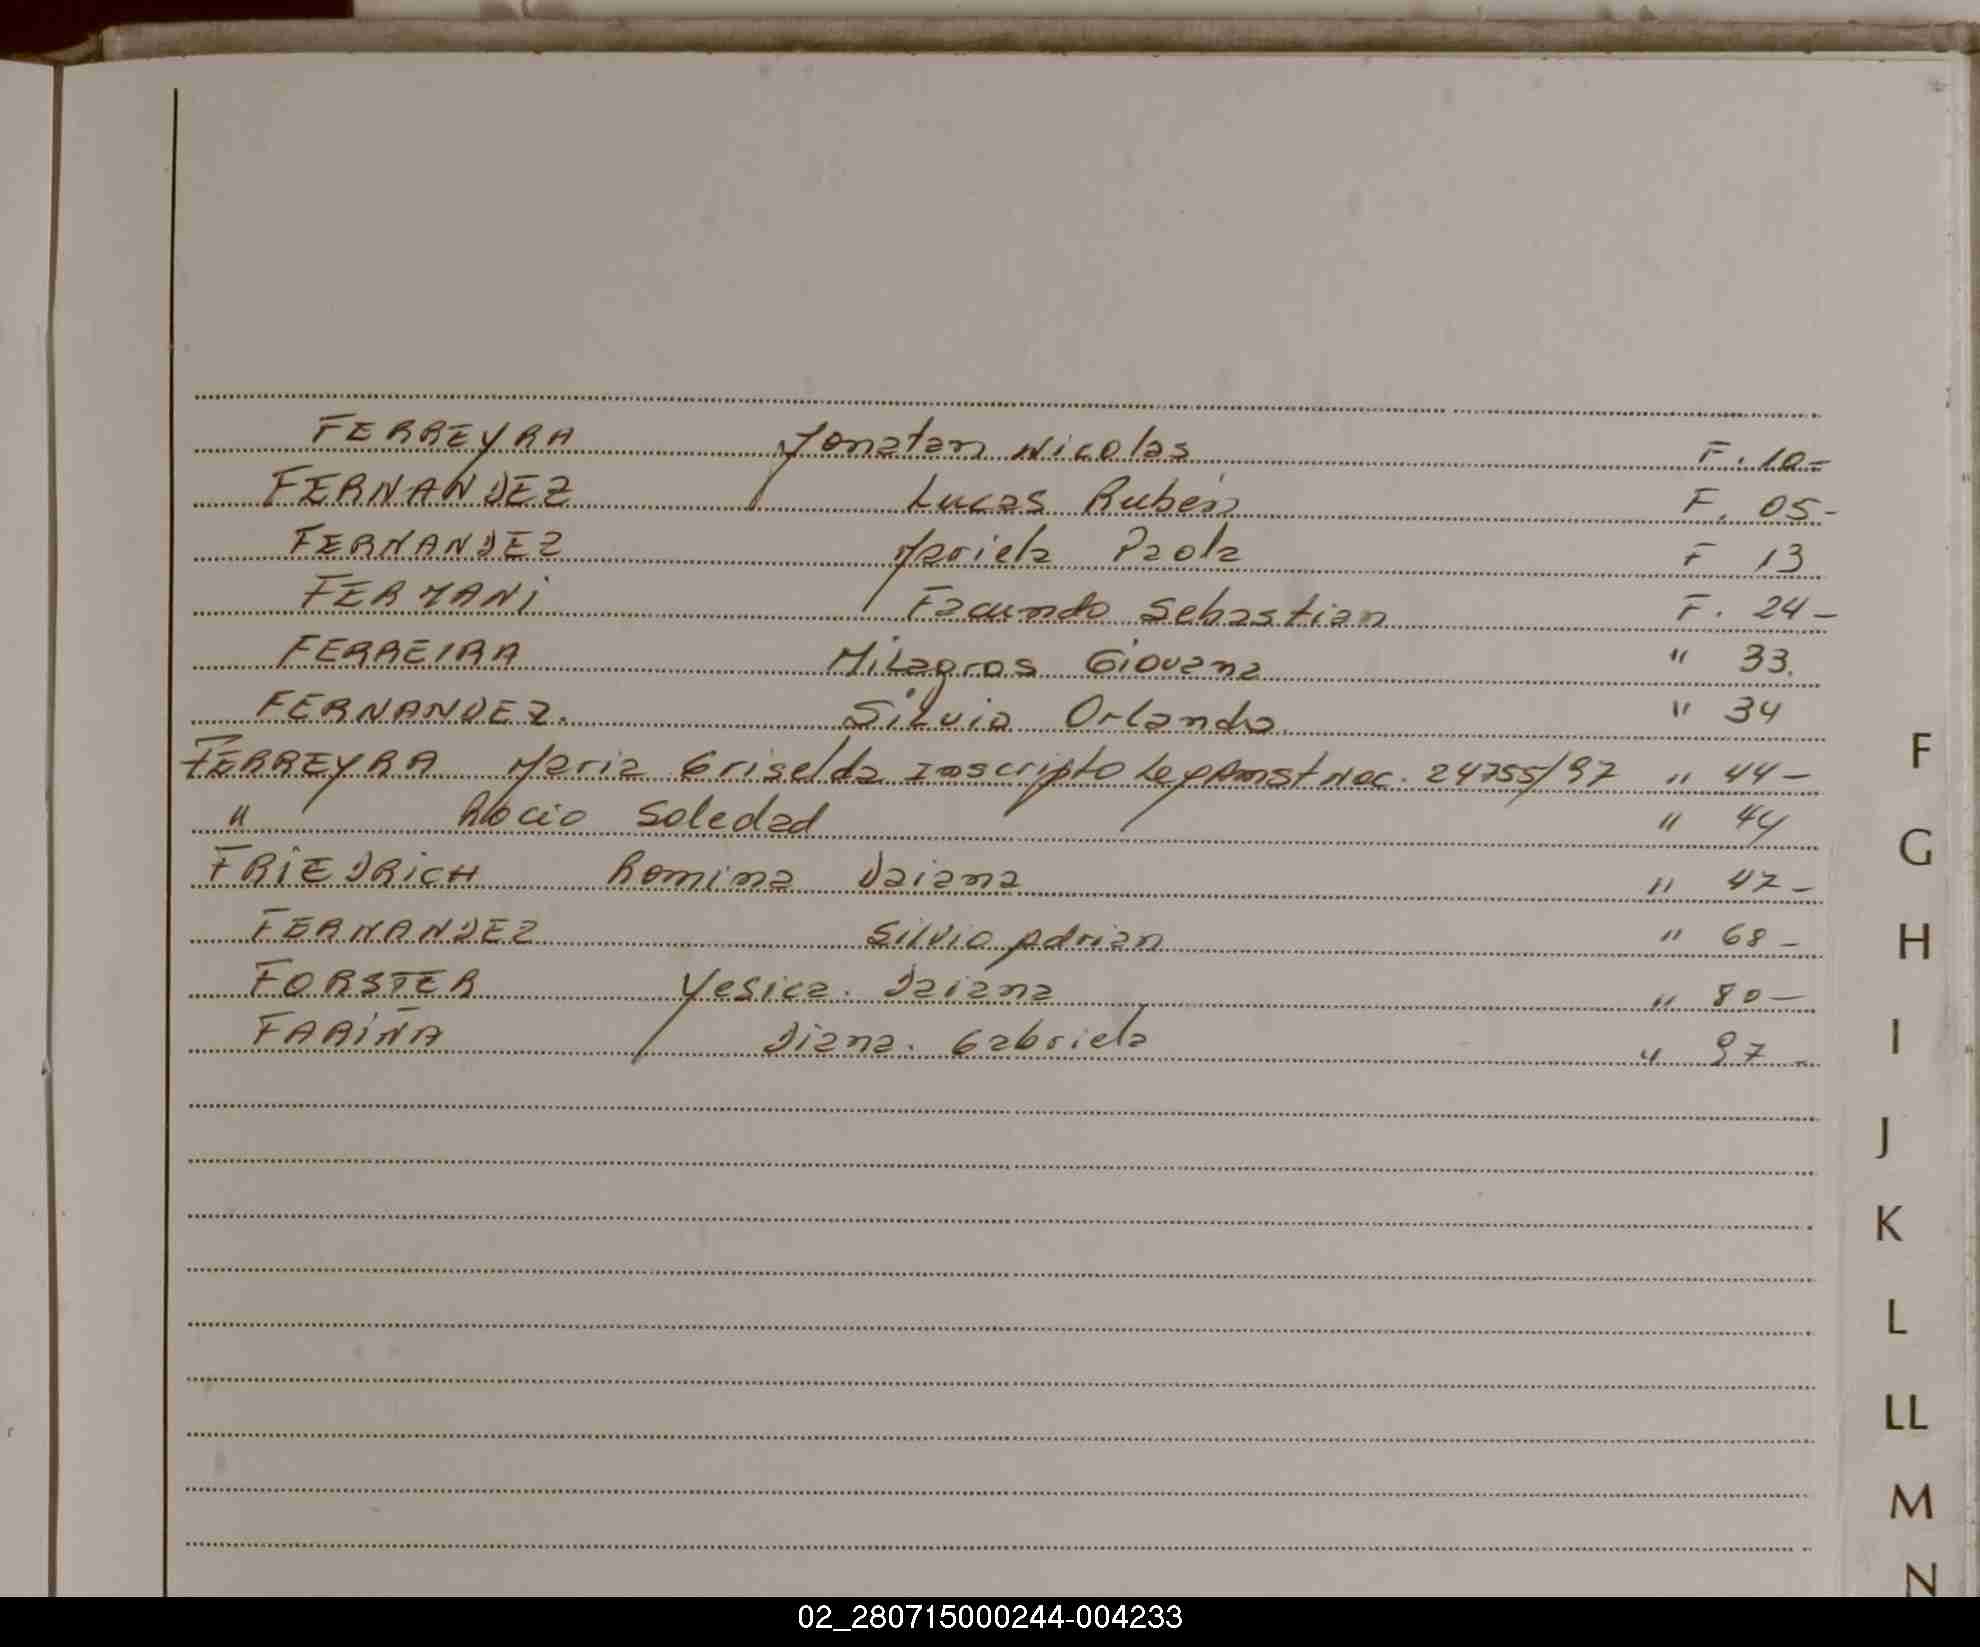 FERREYRA Jonatan Nicolas F. 10-
FERNANDEZ Lucas Rubén F. 05-
FERNANDEZ Mariela Paola F 13
FERZANI Facundo Sebastian F. 24-
FERREIRA Milagros Giovana " 33.
FERNANDEZ. Silvio Orlando " 34
FERREYRA Maria Griselda Inscripto Ley Amst Nac. 24755/97 " 44-
" Rocio Soledad " 44
FRIEDRICH Romina Daiana " 47-
FERNANDEZ Silvio Adrian " 68-
FORSTER Yesica. Daiana " 80-
FARIÑA Diana. Gabriela " 97-
F
G
H
I
J
K
L
LL
M
N
02_280715000244-004233